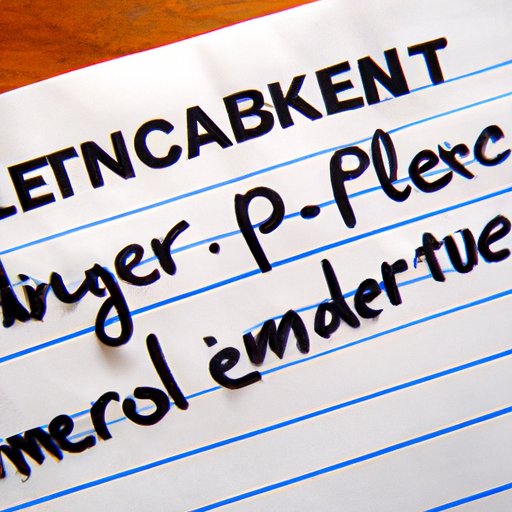 LETNCABKENT
dinger. p. Plerc
merol ëmdertue